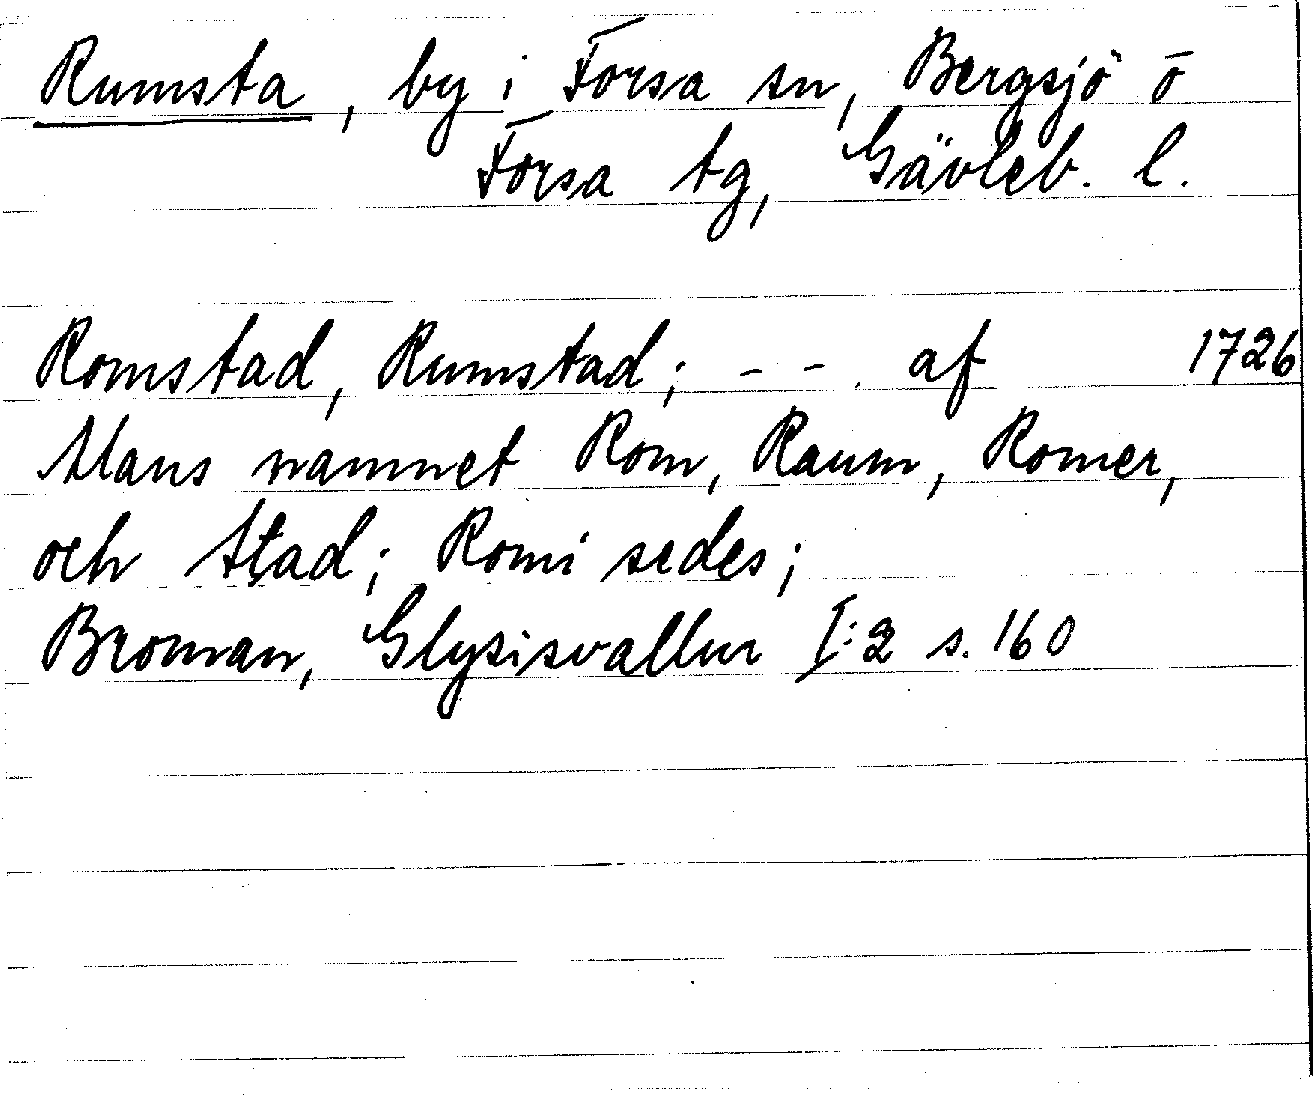 Rumsta, by i Forsa sn, Bergsjö o
Forsa tg, Gävleb. l.
Romstad, Rumstad; - - . af 1726
Mans namnet Rom, Raum, Romer,
och Stad; Romi sedes;
Broman, Glysisvallur I:2 s. 160